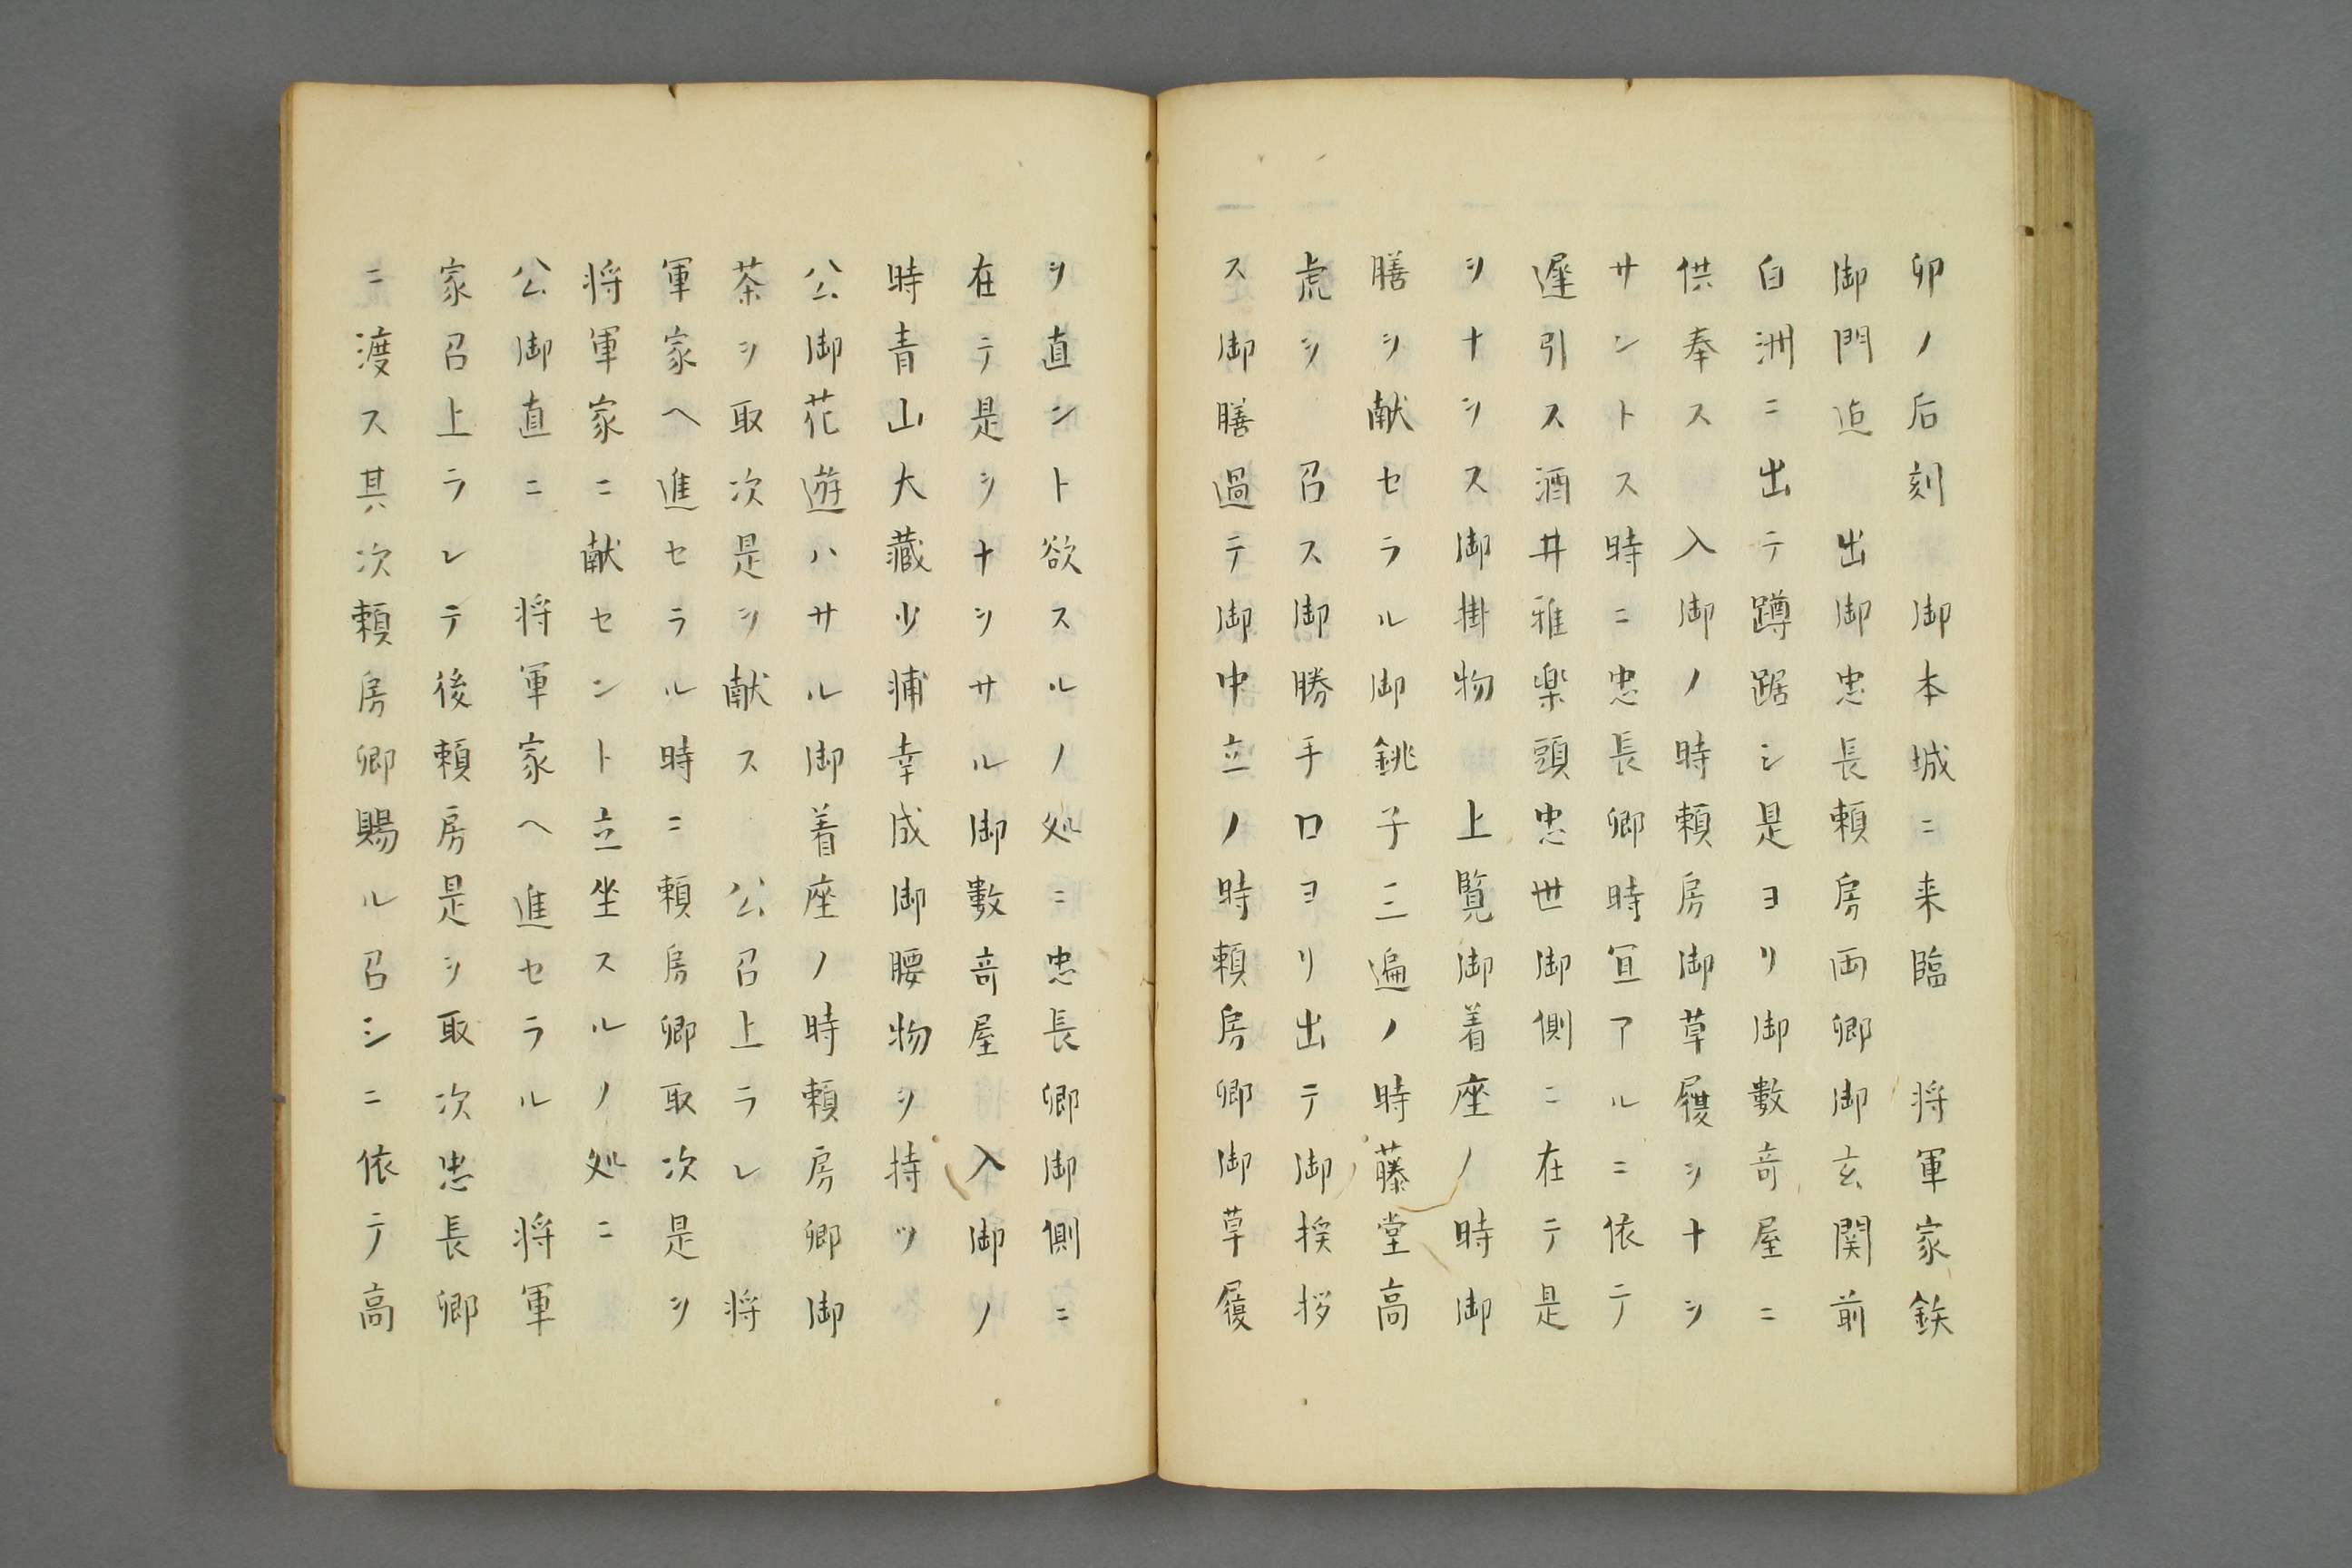 卯ノ后刻　御本城ニ来臨　将軍家鉄
御門迠　出御忠長頼房両卿御玄関前
白洲ニ出テ蹲踞シ是ヨリ御數竒屋ニ
供奉ス　入御ノ時頼房御草履ヲナヲ
サントス時ニ忠長卿時宜アルニ依テ
遲引ス酒井雅楽頭忠世御側ニ在テ是
ヲナヲス御掛物　上覧御着座ノ時御
膳ヲ献セラル御銚子三遍ノ時藤堂高
虎ヲ　召ス御勝手口ヨリ出テ御挨拶
ス御膳過テ御中立ノ時頼房卿御草履
ヲ直ント欲スルノ処ニ忠長卿御側ニ
在テ是ヲナヲサル御數竒屋　入御ノ
時青山大藏少輔幸成御腰物ヲ持ツ
公御花遊ハサル御着座ノ時頼房卿御
茶ヲ取次是ヲ献ス　公召上ラレ　将
軍家ヘ進セラル時ニ頼房卿取次是ヲ
将軍家ニ献セント立坐スルノ処ニ
公御直ニ　将軍家ヘ進セラル　将軍
家召上ラレテ後頼房是ヲ取次忠長卿
ニ渡ス其次頼房卿賜ル召シニ依テ高